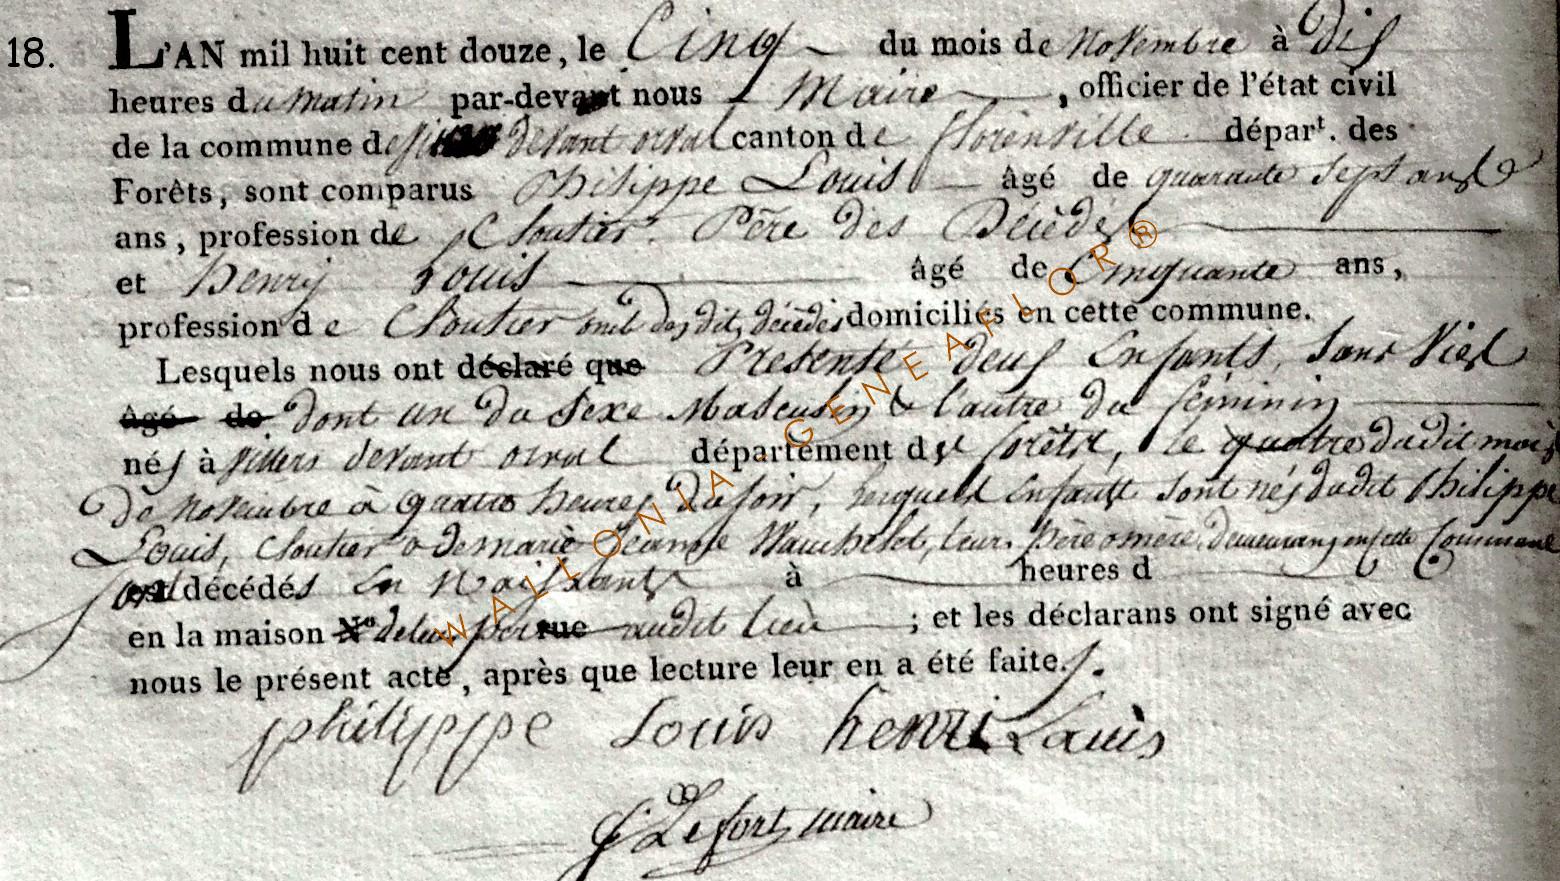 18. L'AN mil huit cent douze, le Cinq du mois de Novembre à Dis
heures du Matin par-devant nous Maire, officier de l'état civil
de la commune de devant orval canton de florenville dépar^t. des
Forêts, sont comparus Philippe Louis âgé de quarante sept ans
ans, profession de Cloutier. Père des Décédés
et henry Louis âgé de Cinquante ans,
profession de Cloutier oncle des dits décédés domiciliés en cette commune.
Lesquels nous ont déclaré que Présenté deus Enfants, sans Vies
âgé de dont un du Sexe Masculin & l'autre du féminin
nés à villers devant orval département des forêts, le quatre dudit mois
de Novembre à quatre heures du soir, lesquels Enfants sont nés dudit Philippe
Louis, Cloutier & de marie Jeanne leur Père & mère, demeurans en cette Commune
sont décédés En Naissants à heures d
en la maison N° de leur père rue audit lieu ; et les déclarans ont signé avec
nous le présent acte, après que lecture leur en a été faite.
philippe Louis henri Louis
Lefort maire
WALLONIA-GENEAFLOR®